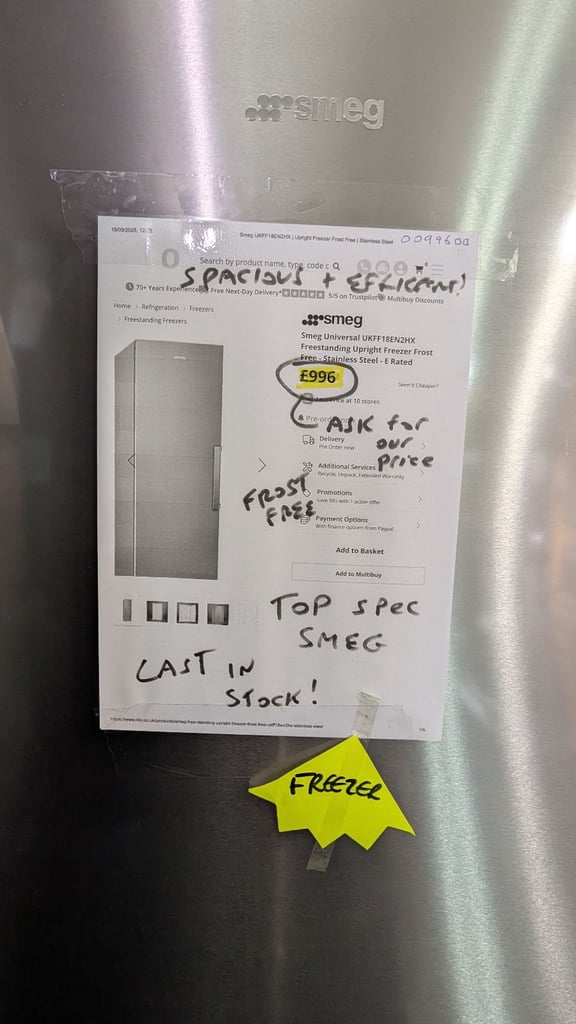 smeg
Smeg UKFF18EN2HX | Upright Freezer Frost Free | Stainless Steel
009966B
Search by product name, type, code
SPACIOUS + EFFICIENT!
70+ Years Experience
Free Next-Day Delivery*
5/5 on Trustpilot
Multibuy Discounts
Home > Refrigeration > Freezers
> Freestanding Freezers
smeg
Smeg Universal UKFF18EN2HX
Freestanding Upright Freezer Frost
Free - Stainless Steel - E Rated
£996
Seen it Cheaper?
at 10 stores
ASK for
our
price
Delivery
Pre Order now
Additional Services
Recycle, Unpack, Extended Warranty
FROST
FREE
Promotions
Save BIG with 1 active offer
Payment Options
With finance options from Paypal
Add to Basket
Add to Multibuy
TOP SPEC
SMEG
LAST IN
STOCK!
1/6
FREEZER